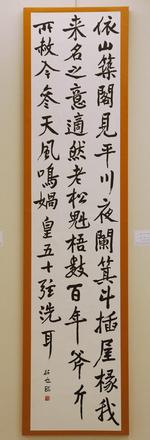 依山築閣見平川夜闌箕斗插屋椽我
来名之意適然老松魁梧數百年斧斤
所赦今参天風鳴媧皇五十弦洗耳